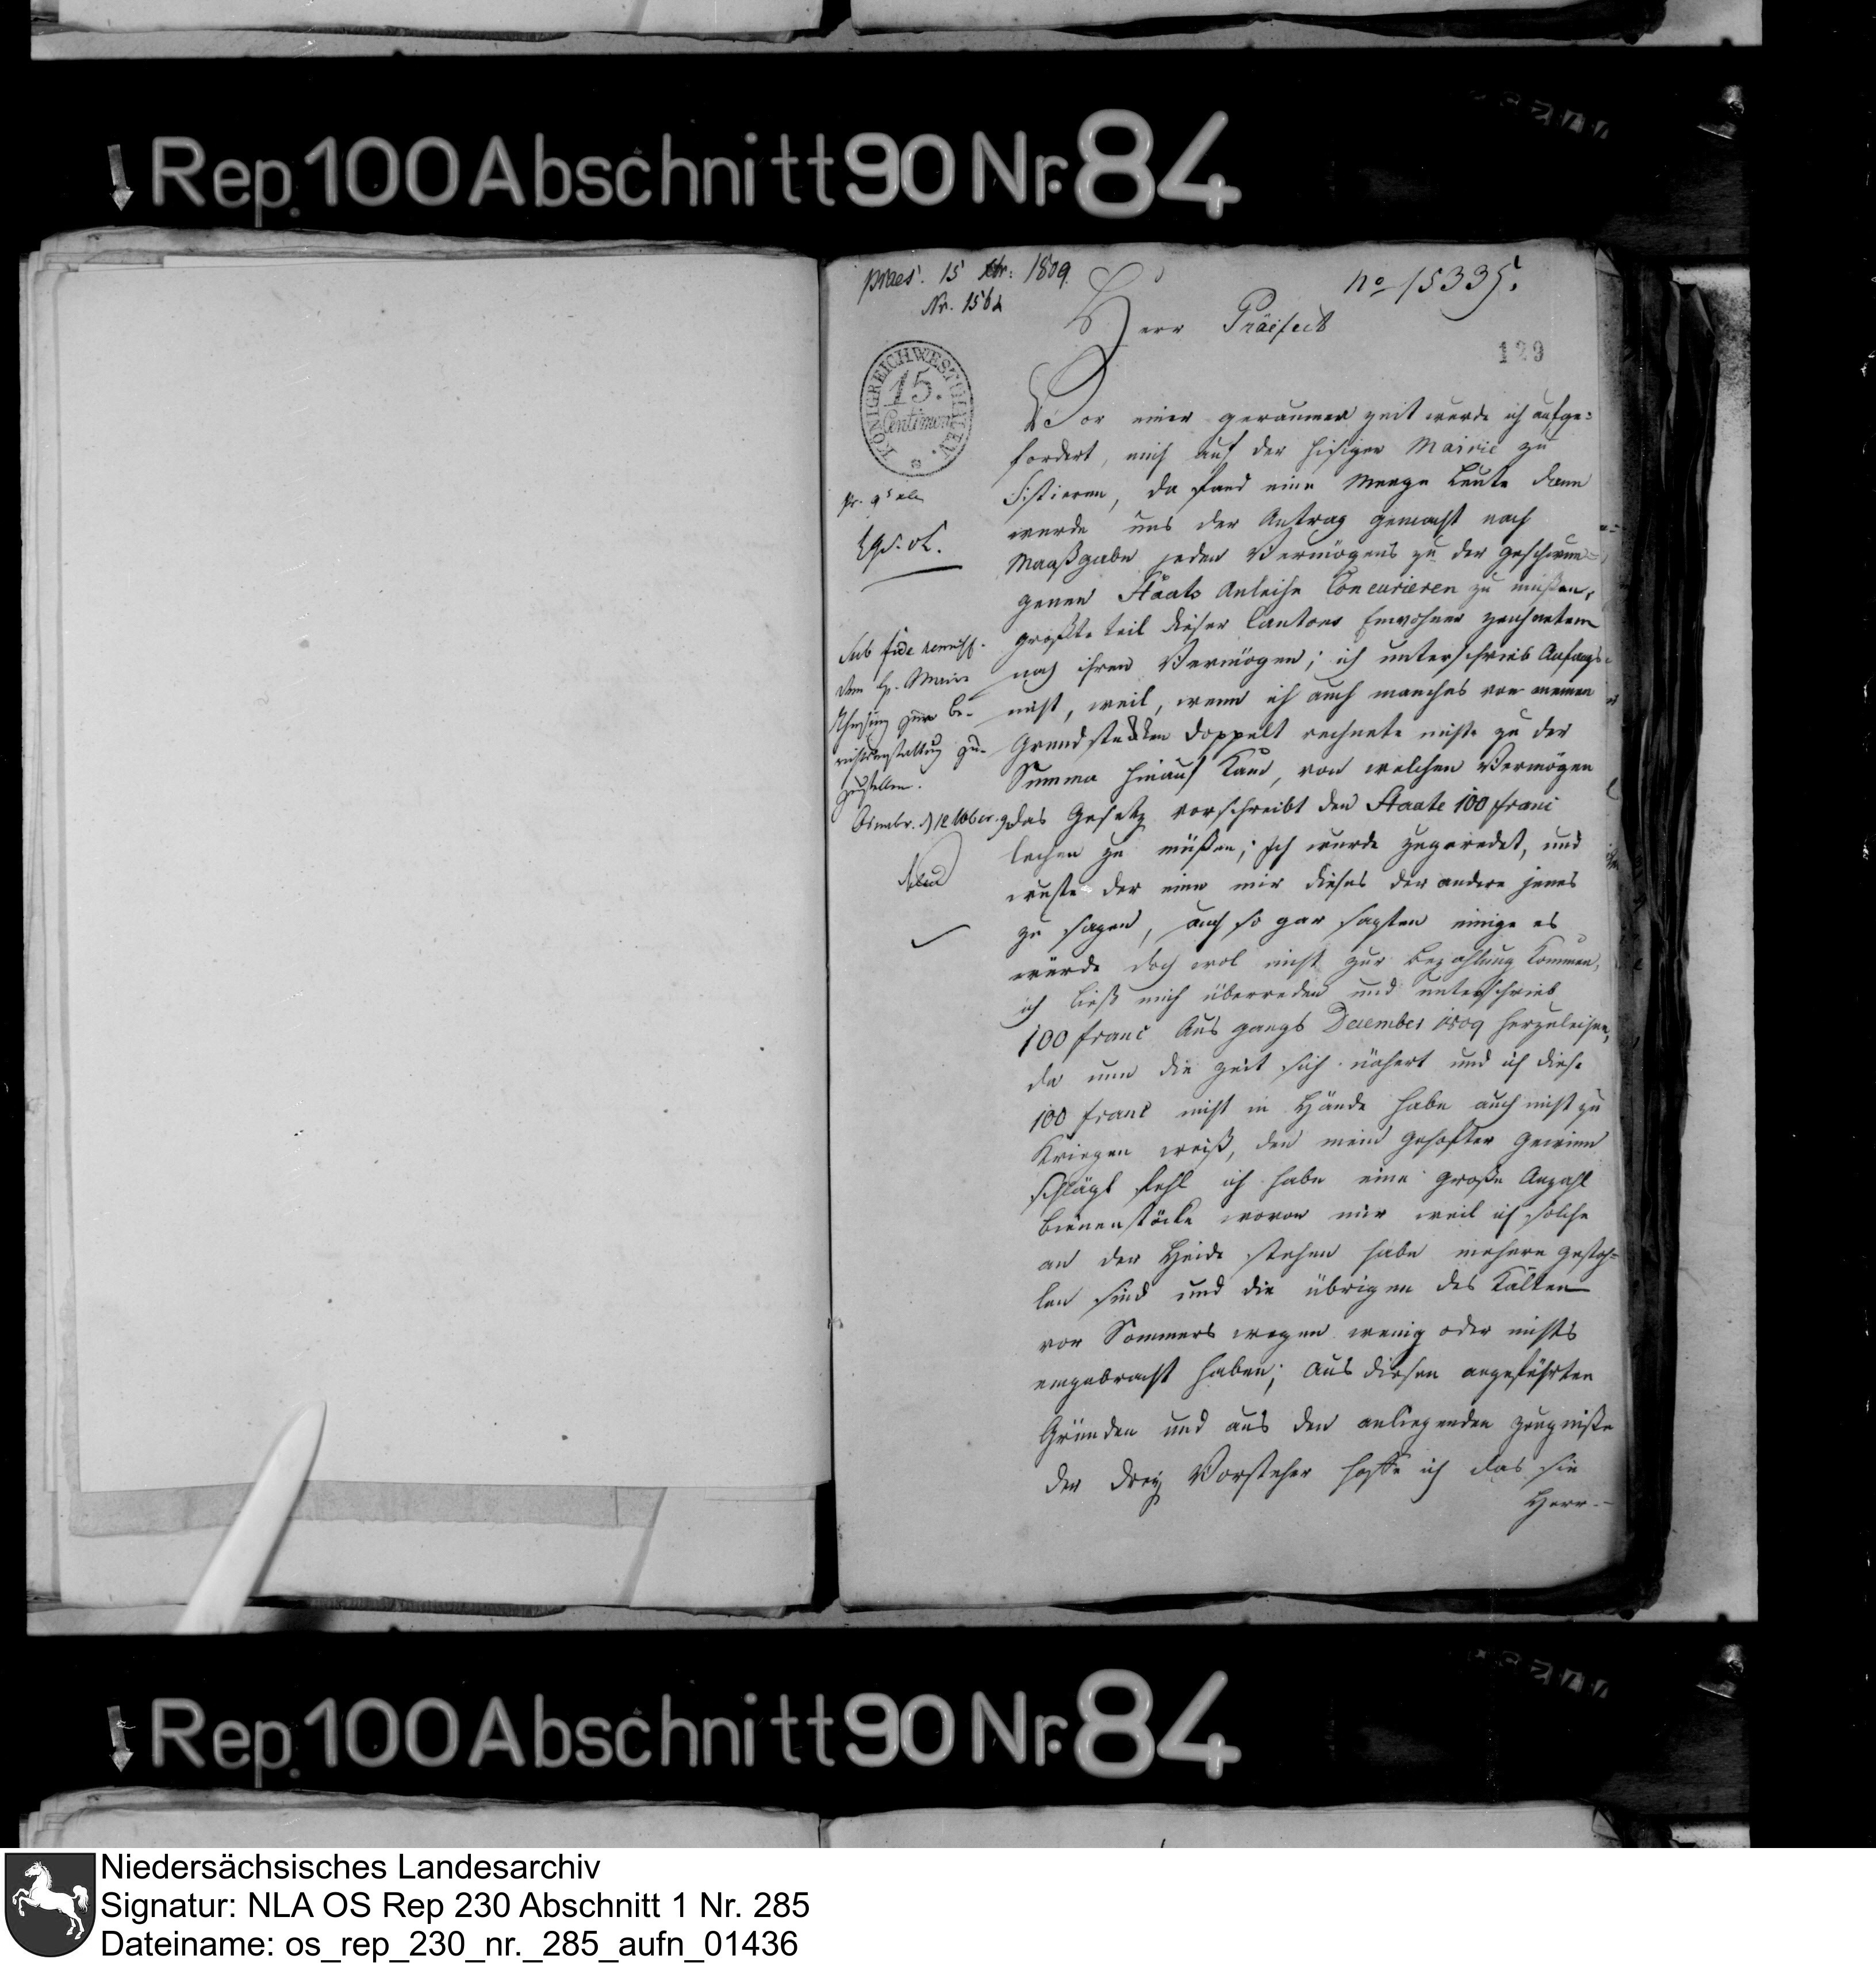 Rep. 100 Abschnitt 90 Nr. 84
praes. 15 xbr: 1809.
Nr. 1562
no 15335.
Herr Präefect
129
KÖNIGREICH WESTPHALEN.
15.
Centimen
Vor einer geraumer zeit wurde ich aufge=
fordert, mich auf der hisigen Mairie zu
Sistieren, da stand eine Menge Leute dann
wurde uns der Antrag gemacht nach
Maaßgabe jeden Vermögens zu der gezwun-
genen Staats Anleihe Concurieren zu müßen,
größte teil dieser Cantons Einwohner zeichneten
nach ihren Vermögen; ich unterschrieb Anfangs
nicht, weil, wenn ich auch manches von meinen
Grundstücken doppelt rechnete nicht zu der
Summa hinauf kam, von welchen Vermögen
das Gesetz vorschreibt den Staate 100 franc
lechen zu müßen; Ich wurde zugeredet, und
wuste der eine mir dieses der andere jenes
zu sagen, auch so gar sagten einige es
würde doch wol nicht zur bezahlung kommen,
ich ließ mich überreden und unterschrieb
100 franc Aus gangs December 1809 herzuleihen,
da nun die zeit sich nähert und ich diese
100 franc nicht in Hände habe auch nicht zu
kriegen weiß, den mein gehofter Gewinn
schlägt fehl ich habe eine große Anzahl
bienenstöcke wovon mir weil ich solche
an der Heide stehen habe mehere gestoh=
len sind und die übrigen des kalten
vor Sommers wegen wenig oder nichts
eingebracht haben; aus diesen angeführten
Gründen und aus den anliegenden zeugniße
der drey Vorsteher hoffe ich das sie
Herr-
Sub fide remiss.
dem H. Maire
zur be-
richtserstattung zu-
zustellen.
Osnabr. d 12 xbr. 9
Rep. 100 Abschnitt 90 Nr. 84
Niedersächsisches Landesarchiv
Signatur: NLA OS Rep 230 Abschnitt 1 Nr. 285
Dateiname: os_rep_230_nr._285_aufn_01436